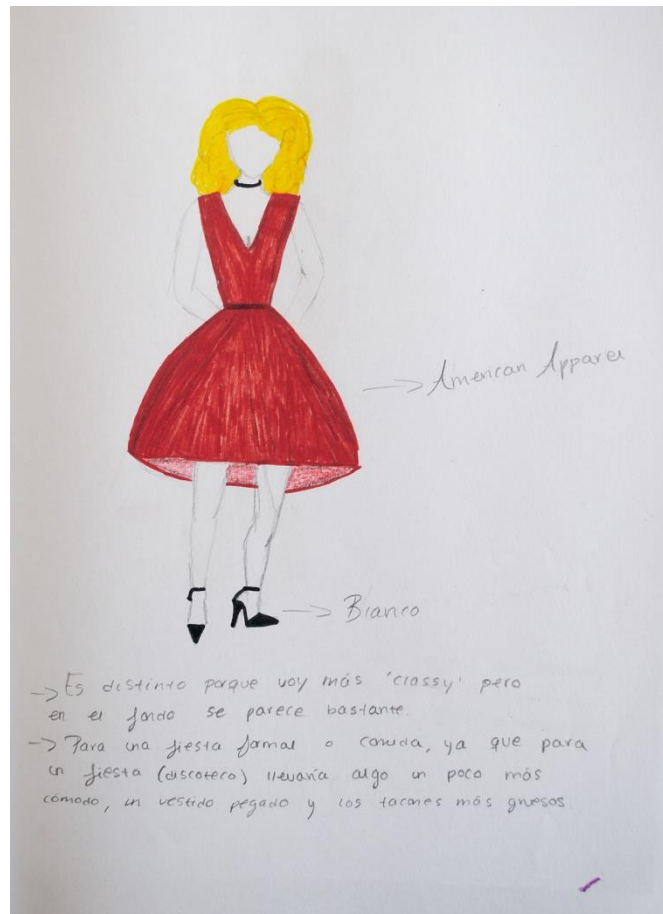 → American Apparel
→ Bianco
→ Es distinto porque voy más 'classy' pero
en el fondo se parece bastante.
→ Para una fiesta formal o comida, ya que para
un fiesta (discoteca) llevaría algo un poco más
cómodo, un vestido pegado y los tacones más gruesos